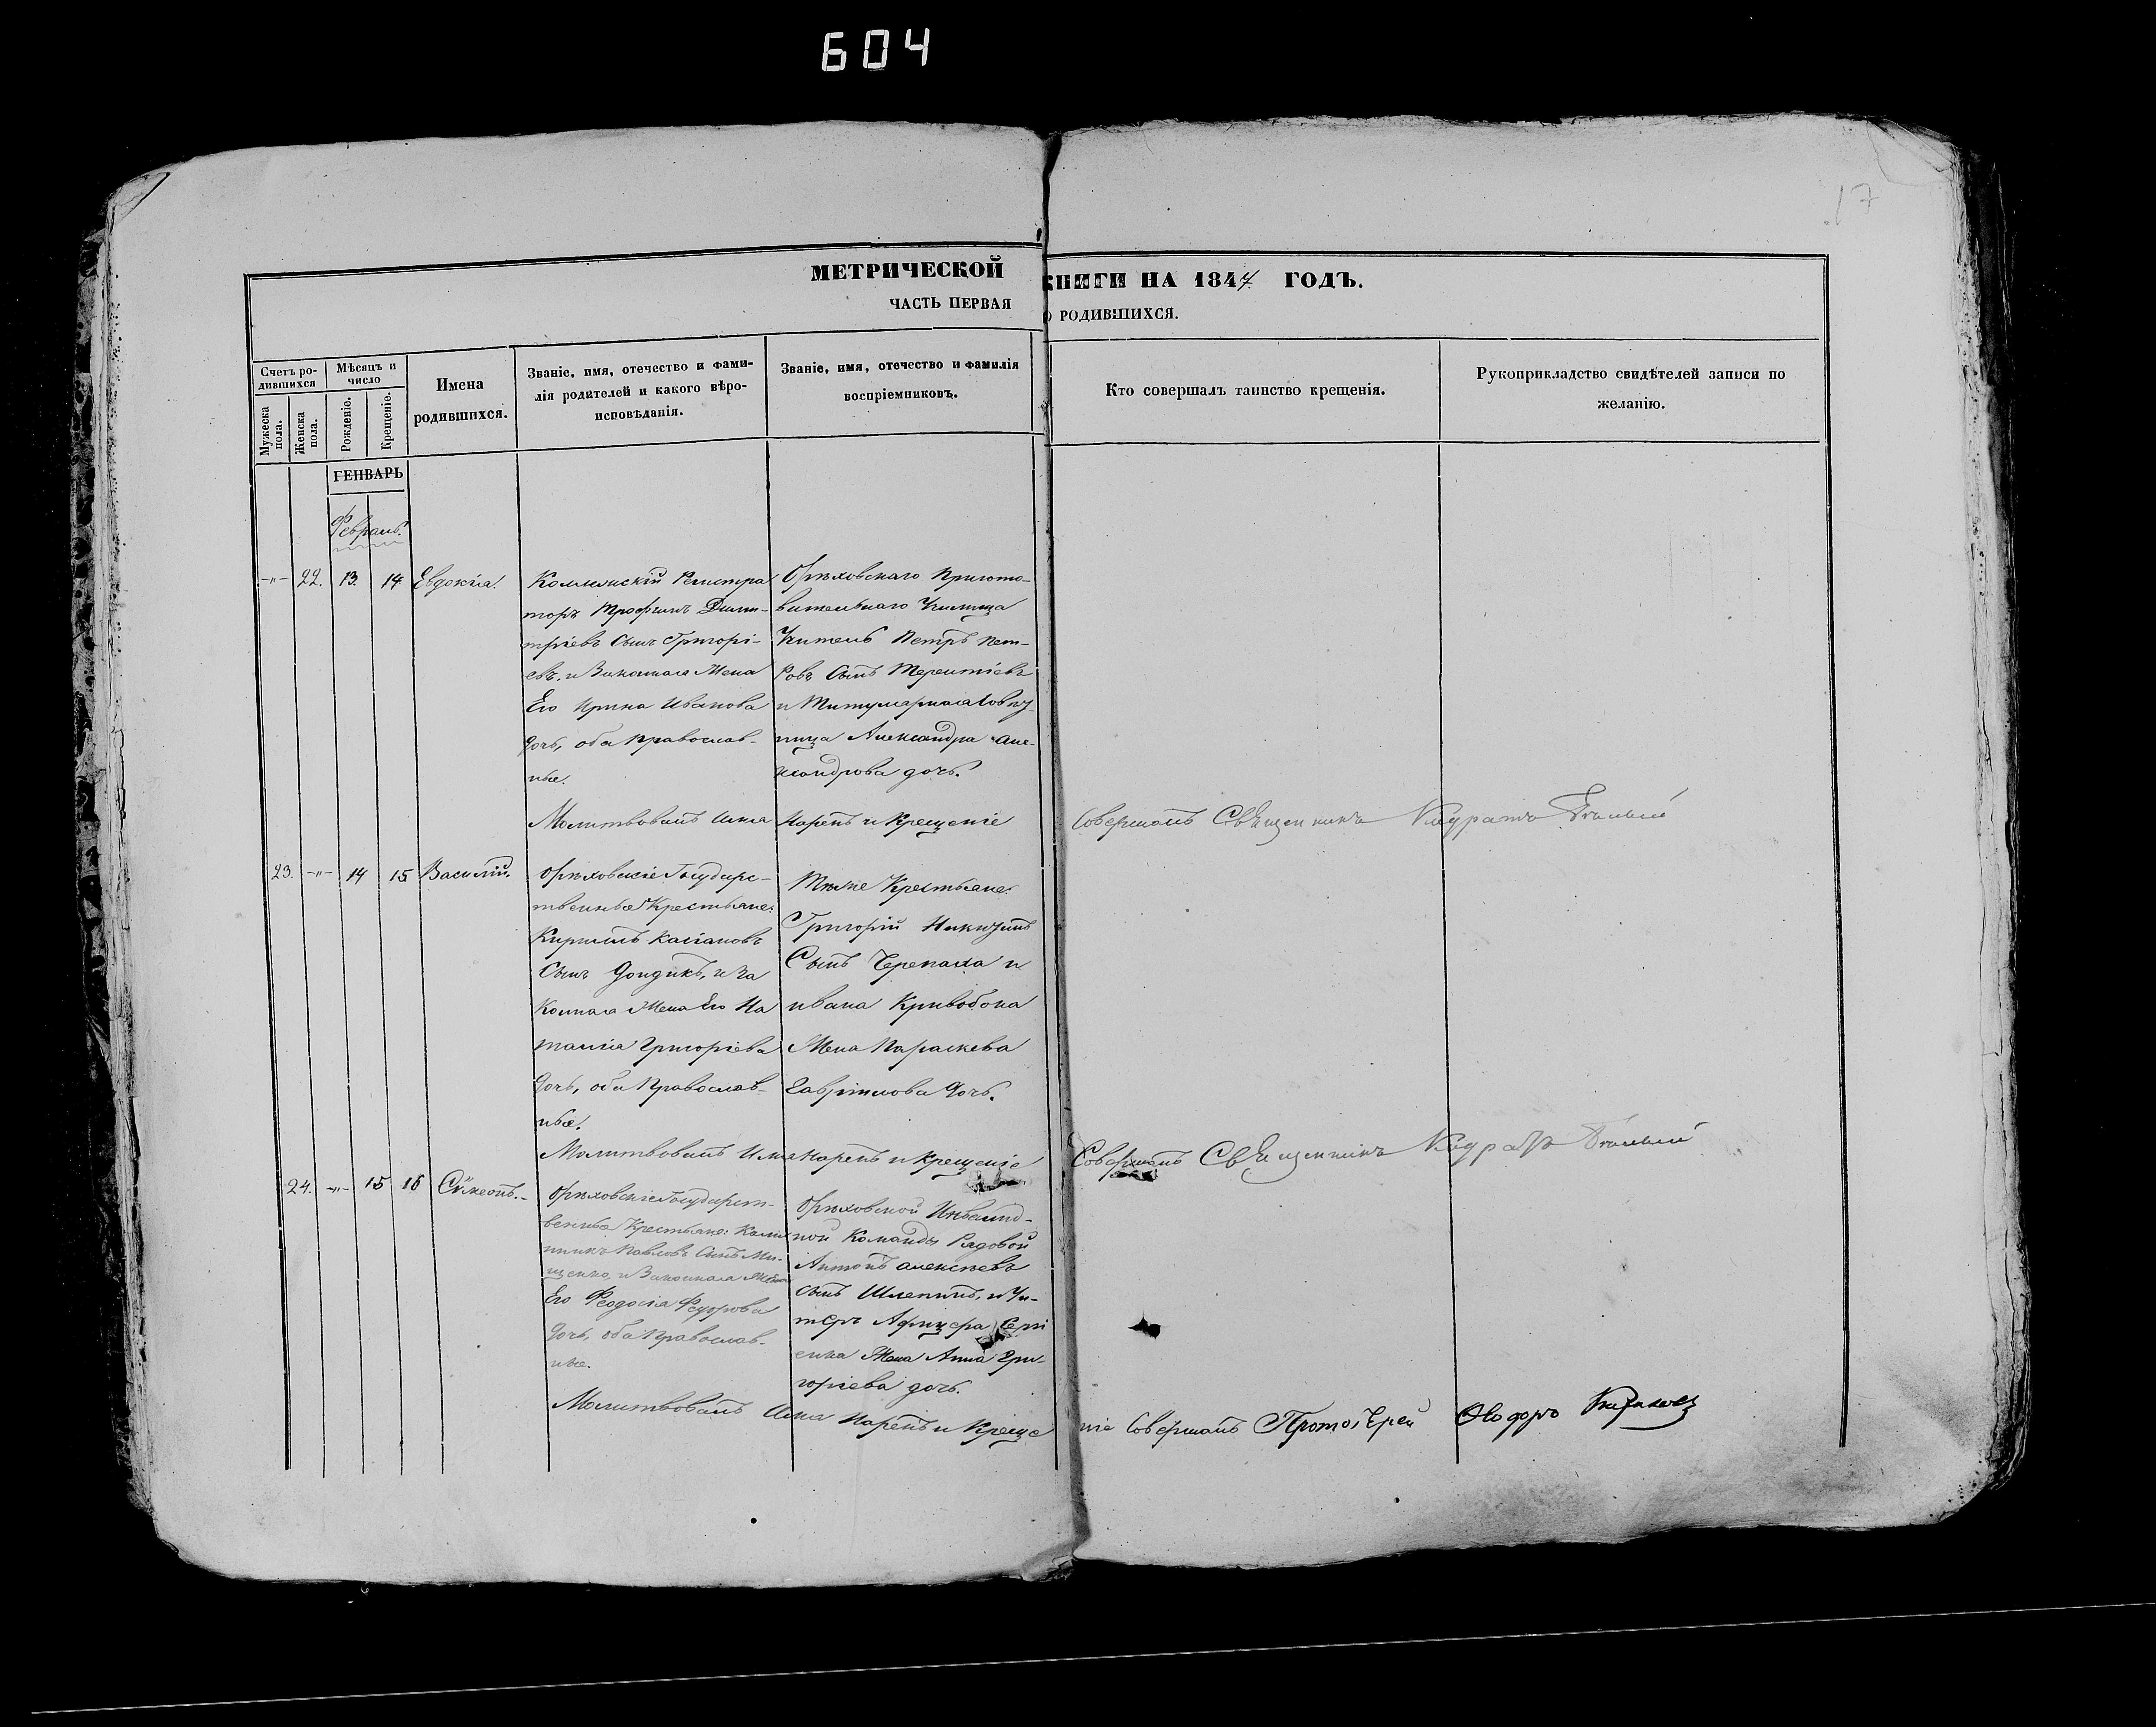 604
17
МЕТРИЧЕСКОЙ КНИГИ НА 1847 ГОДЪ.
ЧАСТЬ ПЕРВАЯ О РОДИВШИХСЯ.
Счетъ ро-
дившихся
Мужеска
пола.
Женска
пола.
Мѣсяцъ и
число
Рожденіе.
Крещеніе.
Имена
родившихся.
Званіе, имя, отечество и фами-
лія родителей и какого вѣро-
исповѣданія.
Званіе, имя, отечество и фамилія
воспріемниковъ.
Кто совершалъ таинство крещенія.
Рукоприкладство свидѣтелей записи по
желанію.
ГЕНВАРЬ
Февраль.
-„- 22. 13. 14 Евдокіа.
Коллежскій Регистра
торъ Трофимъ Дими-
тріевъ Сынъ Григорі-
евъ, и Законная Жена
Его Ирина Иванова
дочь, оба Православ-
ные.
Орѣховскаго Пригото-
вительнаго Училища
Учитель Петръ Пет-
ровъ Сынъ Терентіевъ
и Титулярная Совѣт-
ница Александра Але-
ксандрова дочь.
Молитвовалъ Имя Нарекъ и Крещеніе Совершалъ Священникъ
23. -„- 14 15 Василій.
Орѣховскіе Государс-
твенные Крестьяне:
Кириллъ Касіановъ
Сынъ Дондикъ, и За
конная Жена Его На
талія Григоріева
Дочь, оба Православ-
ные.
Тѣже Крестьяне:
Григорій
Сынъ Черепаха и
Ивана Кривобока
Жена Параскева
Гавріилова Дочь.
Молитвовалъ Имя Нарекъ и Крещеніе Совершалъ Священникъ
24. -„- 15 16 Сѵмеонъ.-
Орѣховскіе Государст-
венные Крестьяне: Калин
никъ Павловъ Сынъ Ми-
щенко, и Законная Жена
Его Феодосіа Федорова
Дочь, оба Православ-
ные.
Орѣховской Инвалид-
ной Команды Рядовой
Антонъ Алексѣевъ
Сынъ и Ун-
теръ Афицера
Жена Анна Гри-
горіева дочь.
Молитвовалъ Имя Нарекъ и Креще
ніе Совершалъ Протоіерей Ѳеодоръ